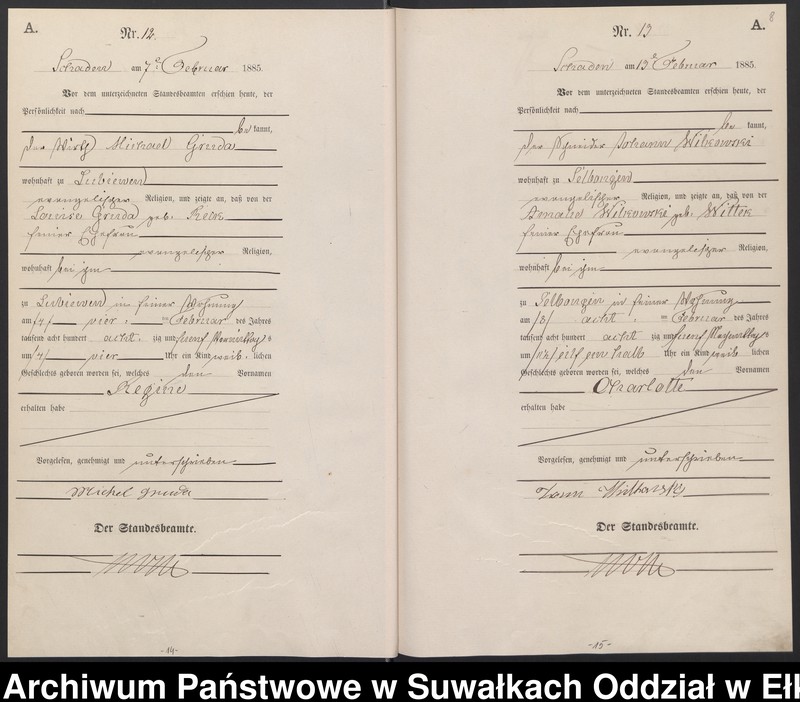 A.
Nr. 12.
Schaden am 7ᵉ Februar 1885.
Vor dem unterzeichneten Standesbeamten erschien heute, der
Persönlichkeit nach
bekannt,
der Wirth Michael Gruda
wohnhaft zu Lubiewen
evangelischer Religion, und zeigte an, daß von der
Louise Gruda geb.
seiner Ehefrau
evangelischer Religion,
wohnhaft bei ihm
zu Lubiewen in seiner Wohnung
am /4/ vier, ten Februar des Jahres
tausend acht hundert acht. zig und fünf Nachmittags
um /4/ vier Uhr ein Kind weib. lichen
Geschlechts geboren worden sei, welches den Vornamen
Regine
erhalten habe
Vorgelesen, genehmigt und unterschrieben
Michel Gruda
Der Standesbeamte.
-14-
8
A.
Nr. 13
Schaden am 13ᵉ Februar 1885.
Vor dem unterzeichneten Standesbeamten erschien heute, der
Persönlichkeit nach
be kannt,
der Schneider Johann Wilkowski
wohnhaft zu Selbongen
evangelischer Religion, und zeigte an, daß von der
Wilkowski geb. Wittek
seiner Ehefrau
evangelischer Religion,
wohnhaft bei ihm
zu Selbongen in seiner Wohnung
am /8/ acht. ten Februar des Jahres
tausend acht hundert acht zig und fünf Nachmittags
um eilf ein halb Uhr ein Kind weib lichen
Geschlechts geboren worden sei, welches den Vornamen
Charlotte
erhalten habe
Vorgelesen, genehmigt und unterschrieben
Der Standesbeamte.
-15-
Archiwum Państwowe w Suwałkach Oddział w Ełk